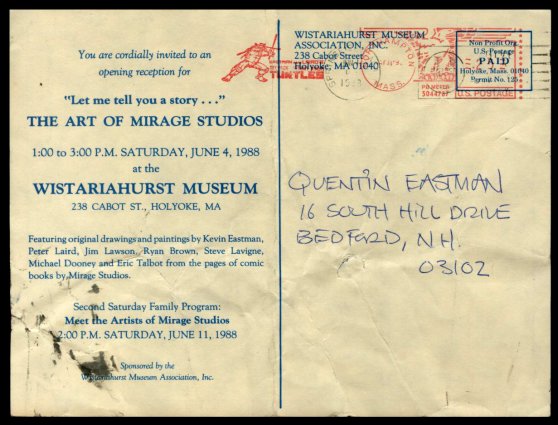 You are cordially invited to an
opening reception for
"Let me tell you a story . . ."
THE ART OF MIRAGE STUDIOS
1:00 to 3:00 P.M. SATURDAY, JUNE 4, 1988
at the
WISTARIAHURST MUSEUM
238 CABOT ST., HOLYOKE, MA
Featuring original drawings and paintings by Kevin Eastman,
Peter Laird, Jim Lawson, Ryan Brown, Steve Lavigne,
Michael Dooney and Eric Talbot from the pages of comic
books by Mirage Studios.
Second Saturday Family Program:
Meet the Artists of Mirage Studios
2:00 P.M. SATURDAY, JUNE 11, 1988
Sponsored by the
Wistariahurst Museum Association, Inc.
WISTARIAHURST MUSEUM
ASSOCIATION, INC.
238 Cabot Street
Holyoke, MA 01040
TURTLES
MASS.
U.S. POSTAGE
Non Profit Org.
U.S. Postage
PAID
Holyoke, Mass. 01040
Permit No. 125
QUENTIN EASTMAN
16 SOUTH HILL DRIVE
BEDFORD, N.H.
03102